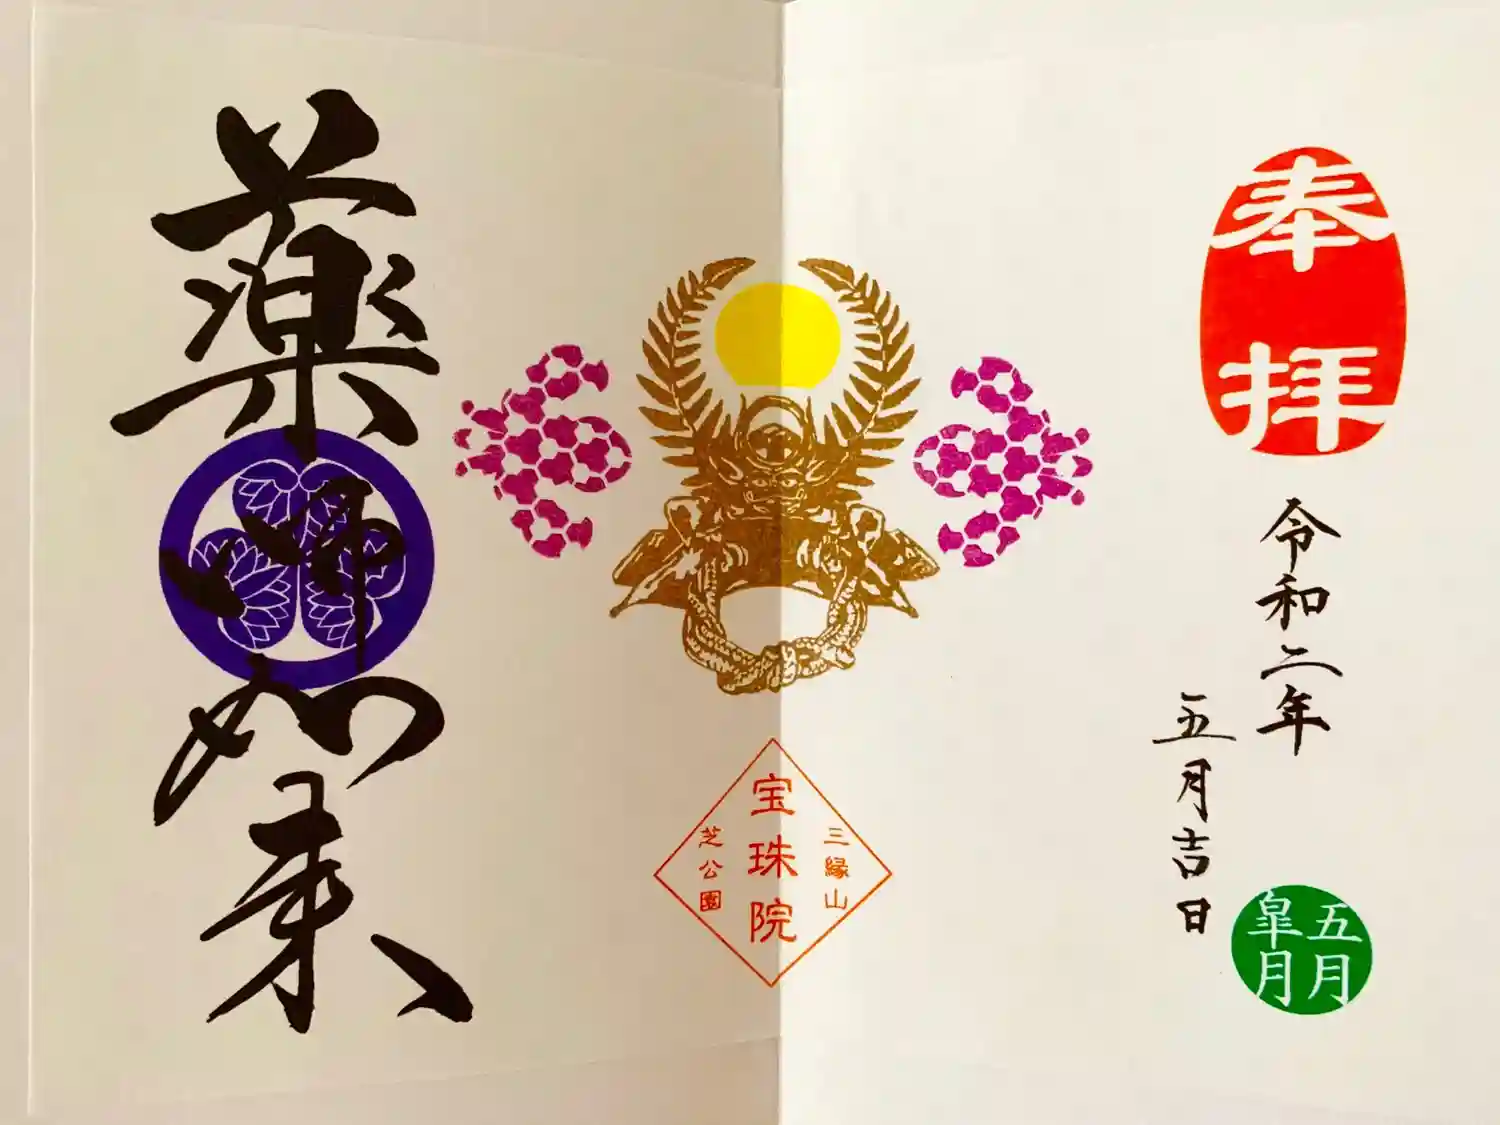 奉拝
令和二年
五月吉日
五月
皐月
三縁山
宝珠院
芝公園
薬師如来